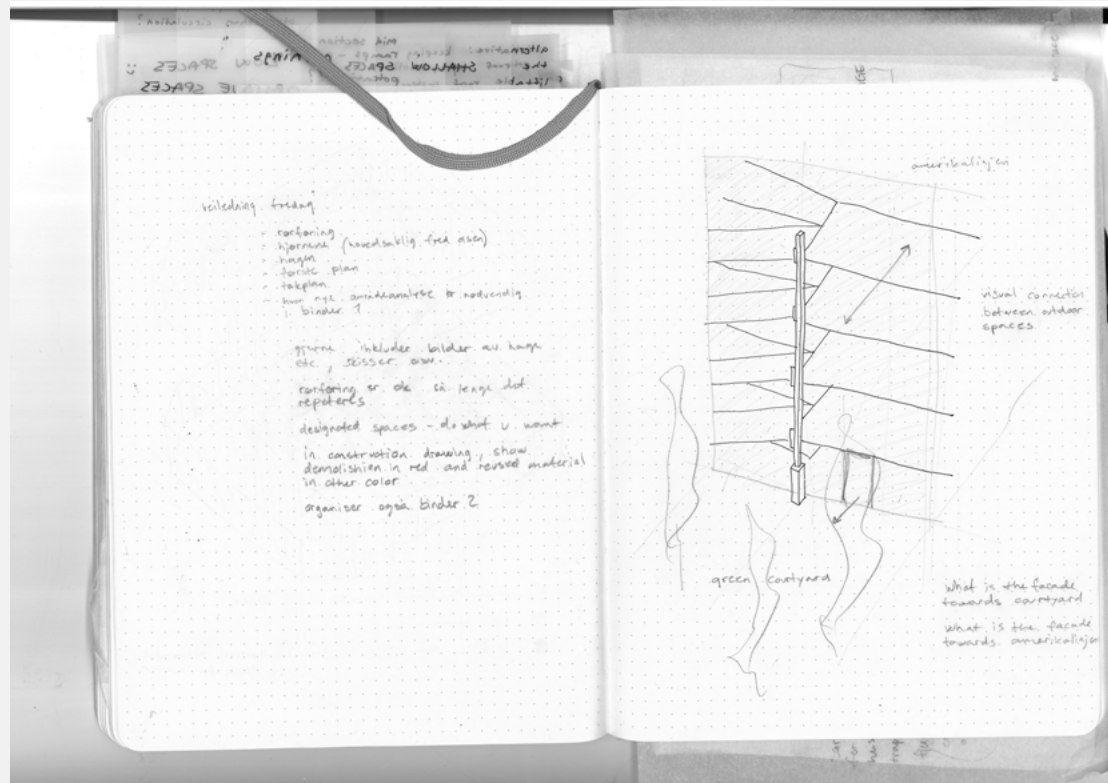 veiledning fredag
- rørføring
- hjørnene (hovedsaklig fred olsen)
- hagen
- første plan
- takplan
- hvor nye områdeanalyse er nødvendig
i binder 1
gjerne inkluder bilder av hage
etc, skisser osv.
rørføring er ok så lenge det
repeteres
designated spaces - do what u want
in construction drawing, show
demolishion in red and reused material
in other color
organiser også binder 2
amerikalinjen
visual connection
between outdoor
spaces
green courtyard
What is the facade
towards courtyard
What is the facade
towards amerikalinjen
mid section
alternative: ramps
the SHALLOW SPACES SPACES
SPACES